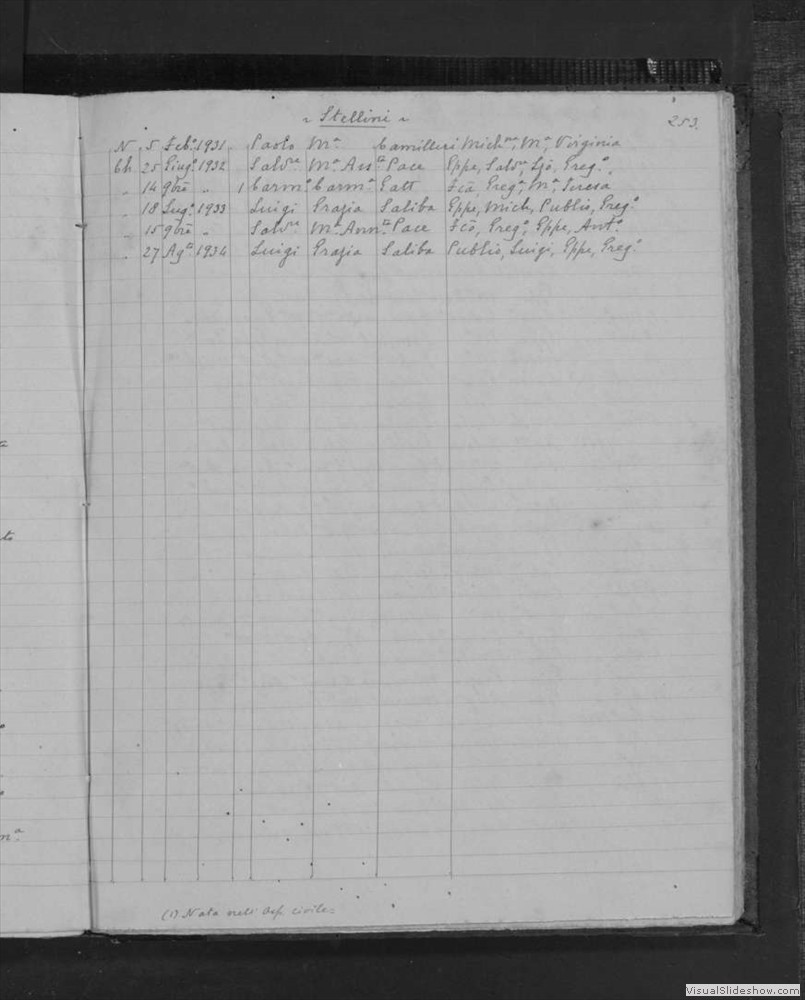 ~ Stellini ~ 253.
N 5 Feb.º 1931 Paolo Mª Camilleri Mich.na, Mª Virginia
Ch. 25 Giug.º 1932 Salv.re Mª Pace Eppe, Salv.re, Greg.º
" 14 9bre " 1 Carmº Carmª Gatt Fca Greg.ª, Mª Teresa
" 18 Lug.º 1933 Luigi Grazia Saliba Eppe, Mich, Publio, Greg.º
" 15 9bre " Salv.re Mª Ann.ta Pace Fco, Greg.º, Eppe, Ant.º
" 27 Ag.to 1934 Luigi Grazia Saliba Publio, Luigi, Eppe, Greg.º
(1) Nata nell' Osp. civile
VisualSlideshow.com